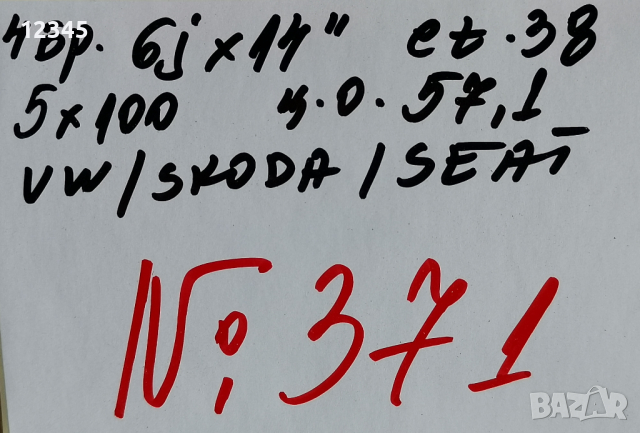 12345
4бр. 6j x 14" et. 38
5x100 ц.о. 57,1
VW/SKODA/SEAT
№ 371
BAZAR